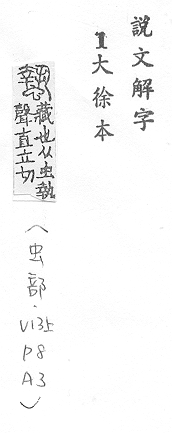 説文解字
1大徐本
蟄藏也从虫執
聲直立切
(虫部·V13上
P8
A3)